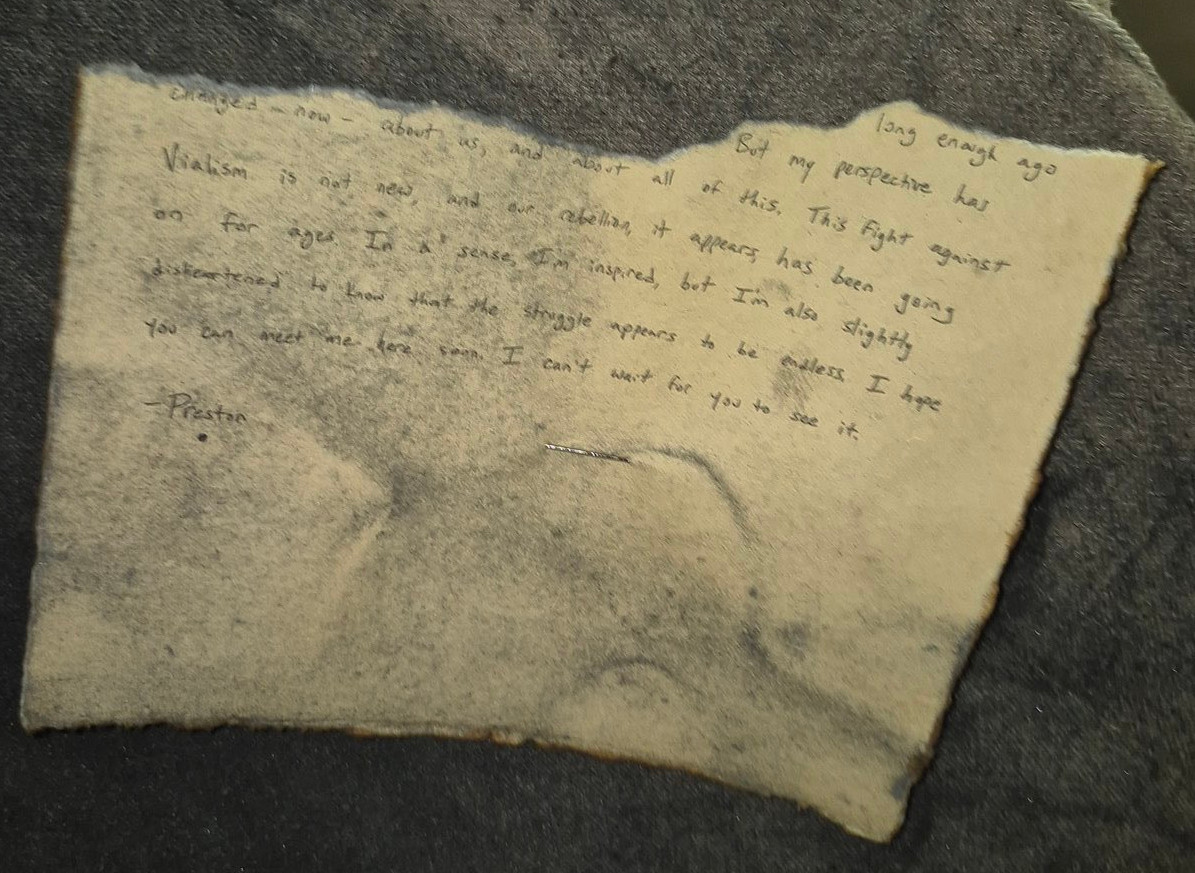 long enough ago
But my perspective has
changed – now – about us, and about all of this. This fight against
Vialism is not new, and our rebellion, it appears, has been going
on for ages. In a sense, I'm inspired, but I'm also slightly
disheartened to know that the struggle appears to be endless. I hope
you can meet me here soon. I can't wait for you to see it.
–Preston